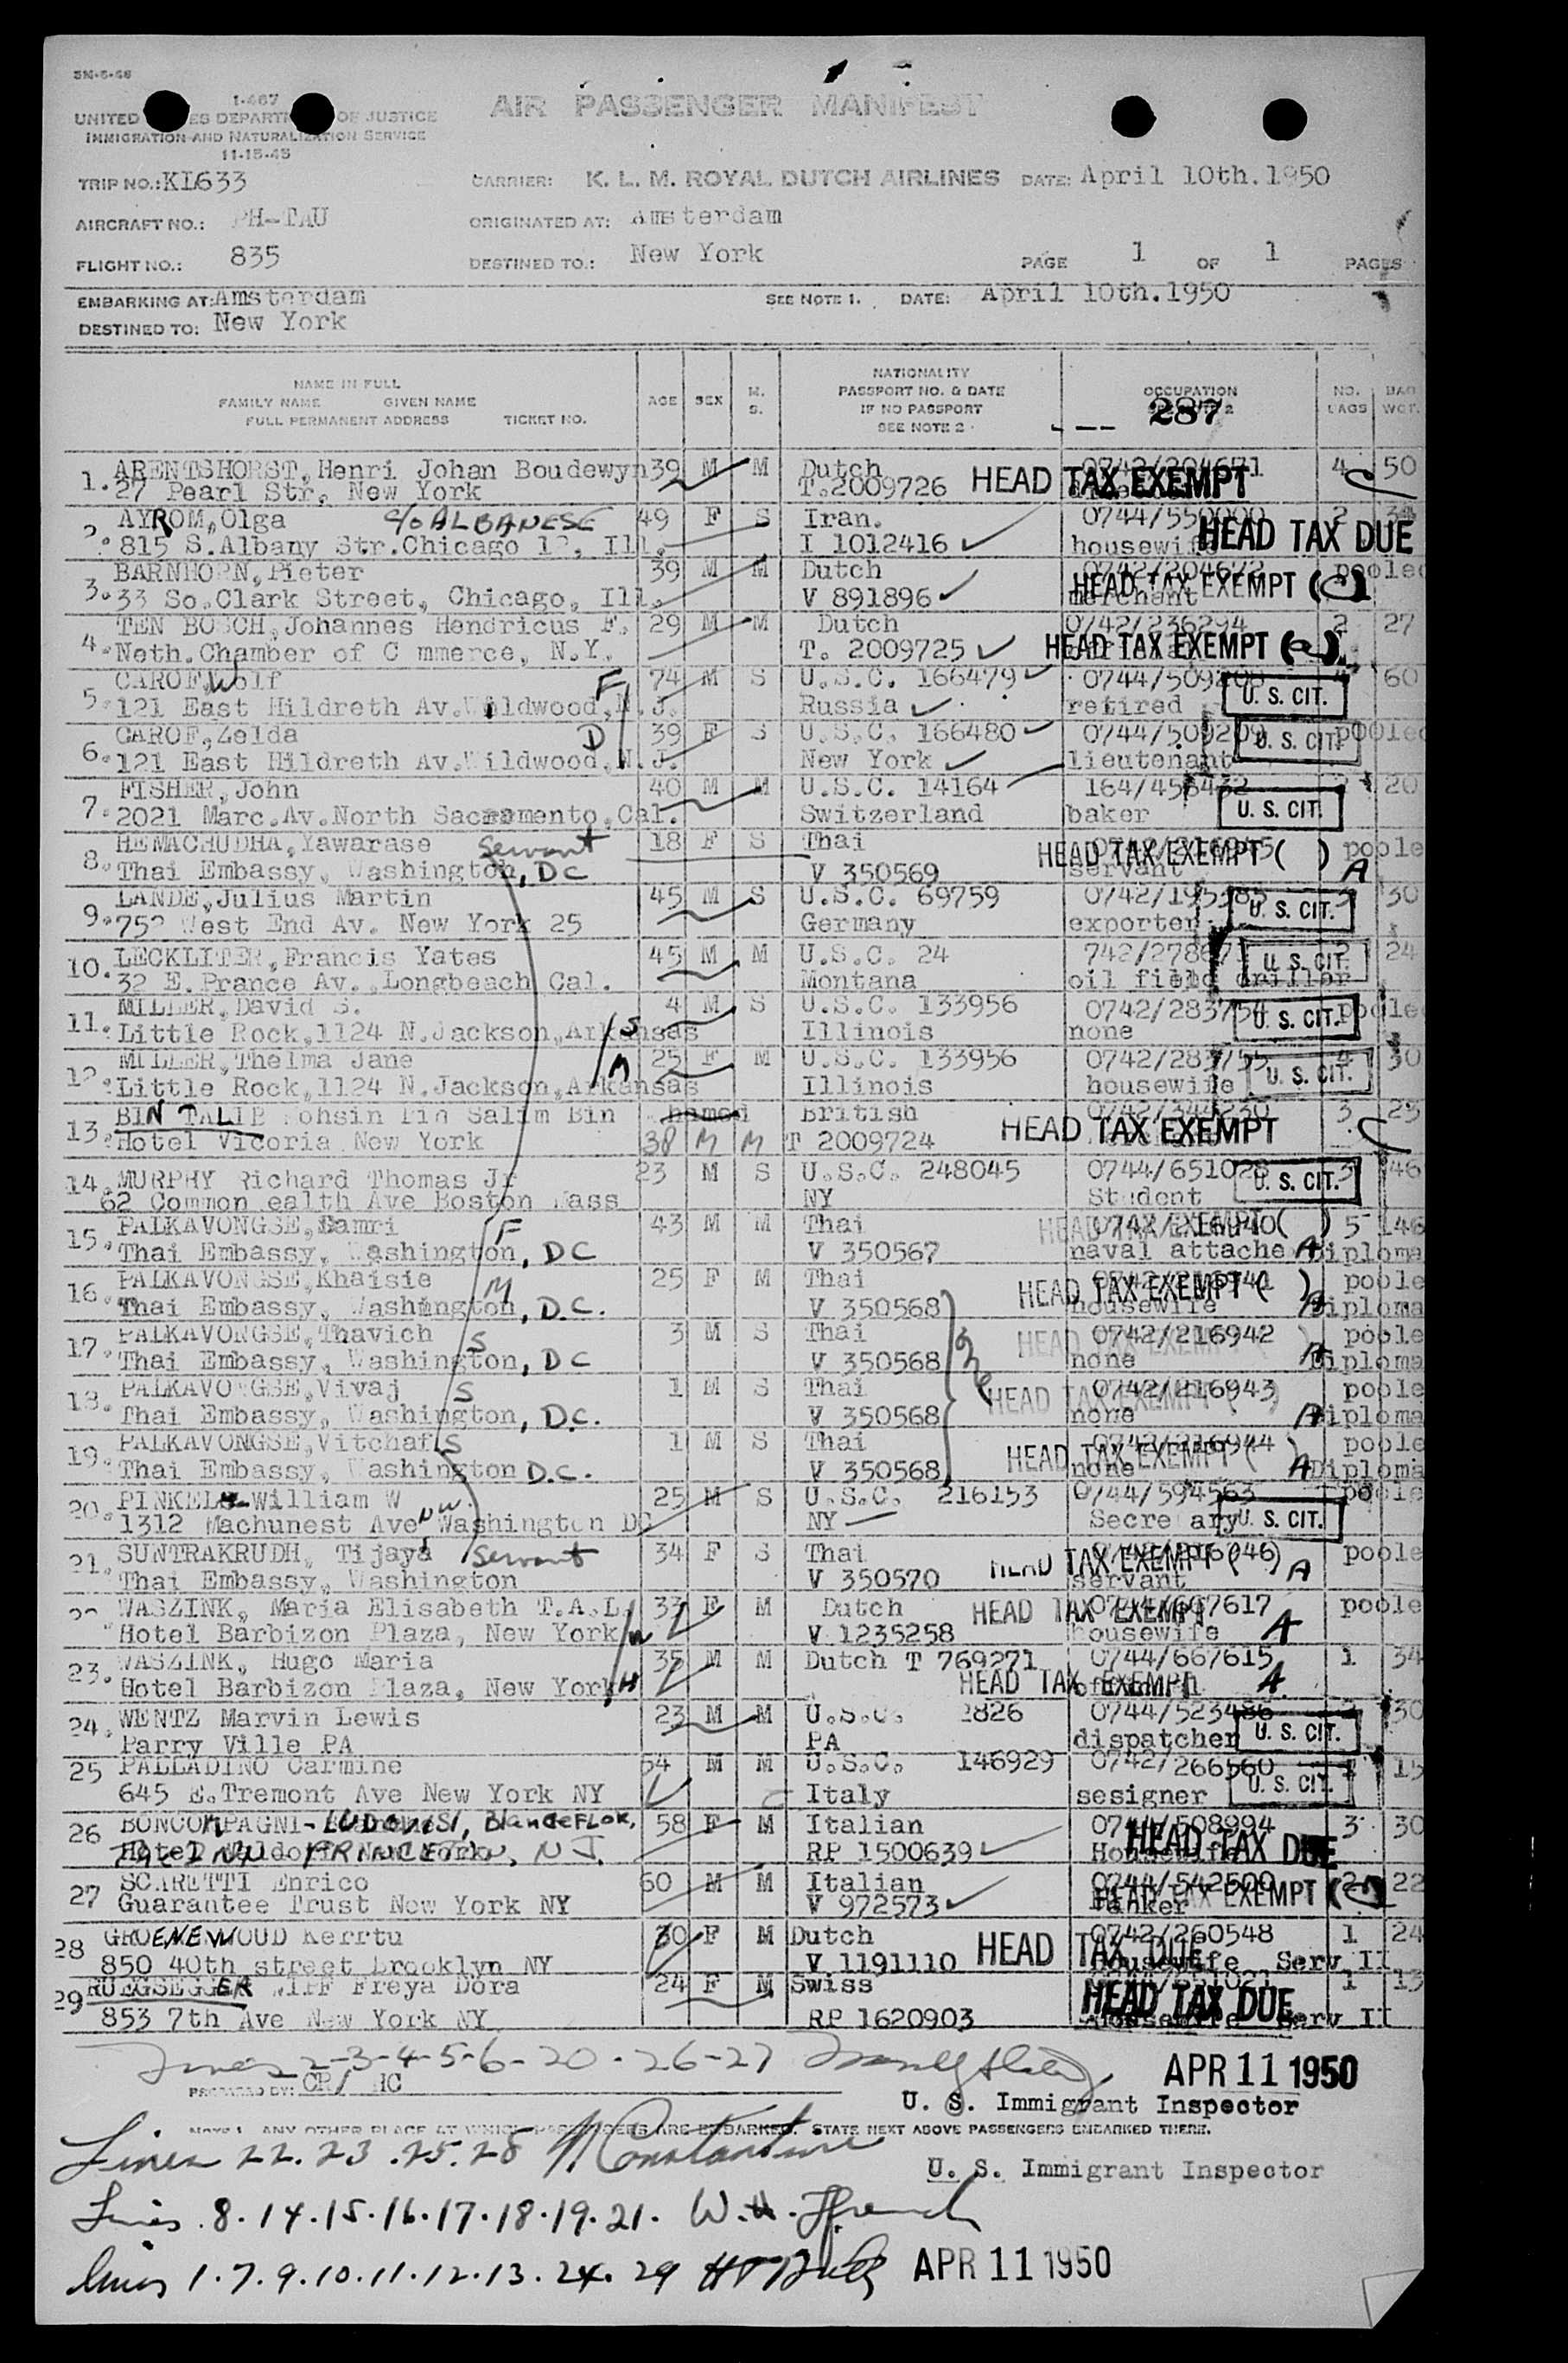 SM-5-48
I-467
UNITED STATES DEPARTMENT OF JUSTICE
IMMIGRATION AND NATURALIZATION SERVICE
11-15-45
AIR PASSENGER MANIFEST
TRIP NO.: KL633 CARRIER: K. L. M. ROYAL DUTCH AIRLINES DATE: April 10th.1950
AIRCRAFT NO.: PH-TAU ORIGINATED AT: Amsterdam
FLIGHT NO.: 835 DESTINED TO.: New York PAGE 1 OF 1 PAGES
EMBARKING AT: Amsterdam SEE NOTE 1. DATE: April 10th.1950
DESTINED TO: New York
NAME IN FULL
FAMILY NAME GIVEN NAME
FULL PERMANENT ADDRESS TICKET NO.
AGE SEX M. S.
NATIONALITY
PASSPORT NO. & DATE
IF NO PASSPORT
SEE NOTE 2
OCCUPATION
287
NO. BAGS BAG WGT.
1. ARENTSHORST, Henri Johan Boudewyn 39 M M Dutch 0742/204671 4 50
27 Pearl Str, New York T.2009726 HEAD TAX EXEMPT
2. AYROM, Olga c/o ALBANESE 49 F S Iran. 0744/550000 2 34
815 S.Albany Str.Chicago 12, Ill. I 1012416 housewife HEAD TAX DUE
3. BARNHOPN, Pieter 39 M M Dutch 0742/204672 pooled
33 So.Clark Street, Chicago, Ill. V 891896 merchant HEAD TAX EXEMPT
4. TEN BOSCH, Johannes Hendricus F. 29 M M Dutch 0742/236294 2 27
Neth.Chamber of C mmerce, N.Y. T. 2009725 HEAD TAX EXEMPT
5. CAROF, Wolf F 74 M S U.S.C. 166479 0744/509208 4 60
121 East Hildreth Av.Wildwood, N.J. Russia retired U. S. CIT.
6. CAROF, Zelda D 39 F S U.S.C. 166480 0744/509209 pooled
121 East Hildreth Av.Wildwood, N.J. New York lieutenant U. S. CIT.
7. FISHER, John 40 M M U.S.C. 14164 164/456432 2 20
2021 Marc.Av.North Sacramento, Cal. Switzerland baker U. S. CIT.
8. HEMACHUDHA, Yawarase Servant 18 F S Thai 0742/216945 poole
Thai Embassy, Washington, DC V 350569 servant HEAD TAX EXEMPT ( ) A
9. LANDE, Julius Martin 45 M S U.S.C. 69759 0742/195385 3 30
752 West End Av. New York 25 Germany exporter U. S. CIT.
10. LECKLITER, Francis Yates 45 M M U.S.C. 24 742/278671 2 24
32 E. Prance Av., Longbeach Cal. Montana oil field driller U. S. CIT.
11. MILLER, David S. S 4 M S U.S.C. 133956 0742/283754 poole
Little Rock, 1124 N.Jackson, Arkansas Illinois none U. S. CIT.
12. MILLER, Thelma Jane M 25 F M U.S.C. 133956 0742/283755 4 30
Little Rock, 1124 N.Jackson, Arkansas Illinois housewife U. S. CIT.
13. BIN TALIB Mohsin Bin Salim Bin British 0742/344230 3 25
Hotel Vicoria New York 38 M M T 2009724 HEAD TAX EXEMPT
14. MURPHY Richard Thomas Jr 23 M S U.S.C. 248045 0744/651028 3 46
62 Common ealth Ave Boston Mass NY Student U. S. CIT.
15. PALKAVONGSE, Damri F 43 M M Thai 0742/216940 5 146
Thai Embassy, Washington, DC V 350567 naval attache HEAD TAX EXEMPT ( ) A Diploma
16. PALKAVONGSE, Khaisie M 25 F M Thai 0742/216941 poole
Thai Embassy, Washington, D.C. V 350568 housewife HEAD TAX EXEMPT ( ) A Diploma
17. PALKAVONGSE, Thavich S 3 M S Thai 0742/216942 poole
Thai Embassy, Washington, DC V 350568 none HEAD TAX EXEMPT ( ) A Diploma
18. PALKAVONGSE, Vivaj S 1 M S Thai 0742/216943 poole
Thai Embassy, Washington, D.C. V 350568 none HEAD TAX EXEMPT ( ) A Diploma
19. PALKAVONGSE, Vitchaf S 1 M S Thai 0742/216944 poole
Thai Embassy, Washington D.C. V 350568 none HEAD TAX EXEMPT ( ) A Diploma
20. PINKEL William W 25 M S U.S.C. 216153 0744/594563 poole
1312 Machunest Ave N.W. Washington DC NY Secre ary U. S. CIT.
21. SUNTRAKRUDH, Tijaya Servant 34 F S Thai 0742/216946 poole
Thai Embassy, Washington V 350570 servant HEAD TAX EXEMPT ( ) A
22. WASZINK, Maria Elisabeth T.A.L. 33 F M Dutch 0744/667617 poole
Hotel Barbizon Plaza, New York W V 1235258 housewife HEAD TAX EXEMPT A
23. WASZINK, Hugo Maria 35 M M Dutch T 769271 0744/667615 1 34
Hotel Barbizon Plaza, New York H HEAD TAX EXEMPT A
24. WENTZ Marvin Lewis 23 M M U.S.C. 2826 0744/523486 2 30
Parry Ville PA PA dispatcher U. S. CIT.
25 PALLADINO Carmine 54 M M U.S.C. 146929 0742/266560 1 15
645 E.Tremont Ave New York NY Italy sesigner U. S. CIT.
26 BONCOMPAGNI-LUDOVISI, BlanceFLOR, 58 F M Italian 0744/508994 3 30
PRINCETON, N J. RP 1500639 Housewife HEAD TAX DUE
27 SCARETTI Enrico 60 M M Italian 0744/542500 2 22
Guarantee Trust New York NY V 972573 Banker HEAD TAX EXEMPT
28 GROENEWOUD Kerrtu 30 F M Dutch 0742/260548 1 24
850 40th street Brooklyn NY V 1191110 HEAD TAX DUE housewife Serv II
29 RUEGSEGGER WIPF Freya Dora 24 F M Swiss 1 13
853 7th Ave New York NY RP 1620903 HEAD TAX DUE housewife Serv II
Lines 2-3-4-5-6-20-26-27 APR 11 1950
PREPARED BY: CR/ HC
U. S. Immigrant Inspector
NOTE 1. ANY OTHER PLACE AT WHICH PASSENGERS ARE EMBARKED. STATE NEXT ABOVE PASSENGERS EMBARKED THERE.
Lines 22.23.25.28 N Constantine
U. S. Immigrant Inspector
Lines 8.14.15.16.17.18.19.21. W.H. Ffrench
Lines 1.7.9.10.11.12.13.24.29 APR 11 1950